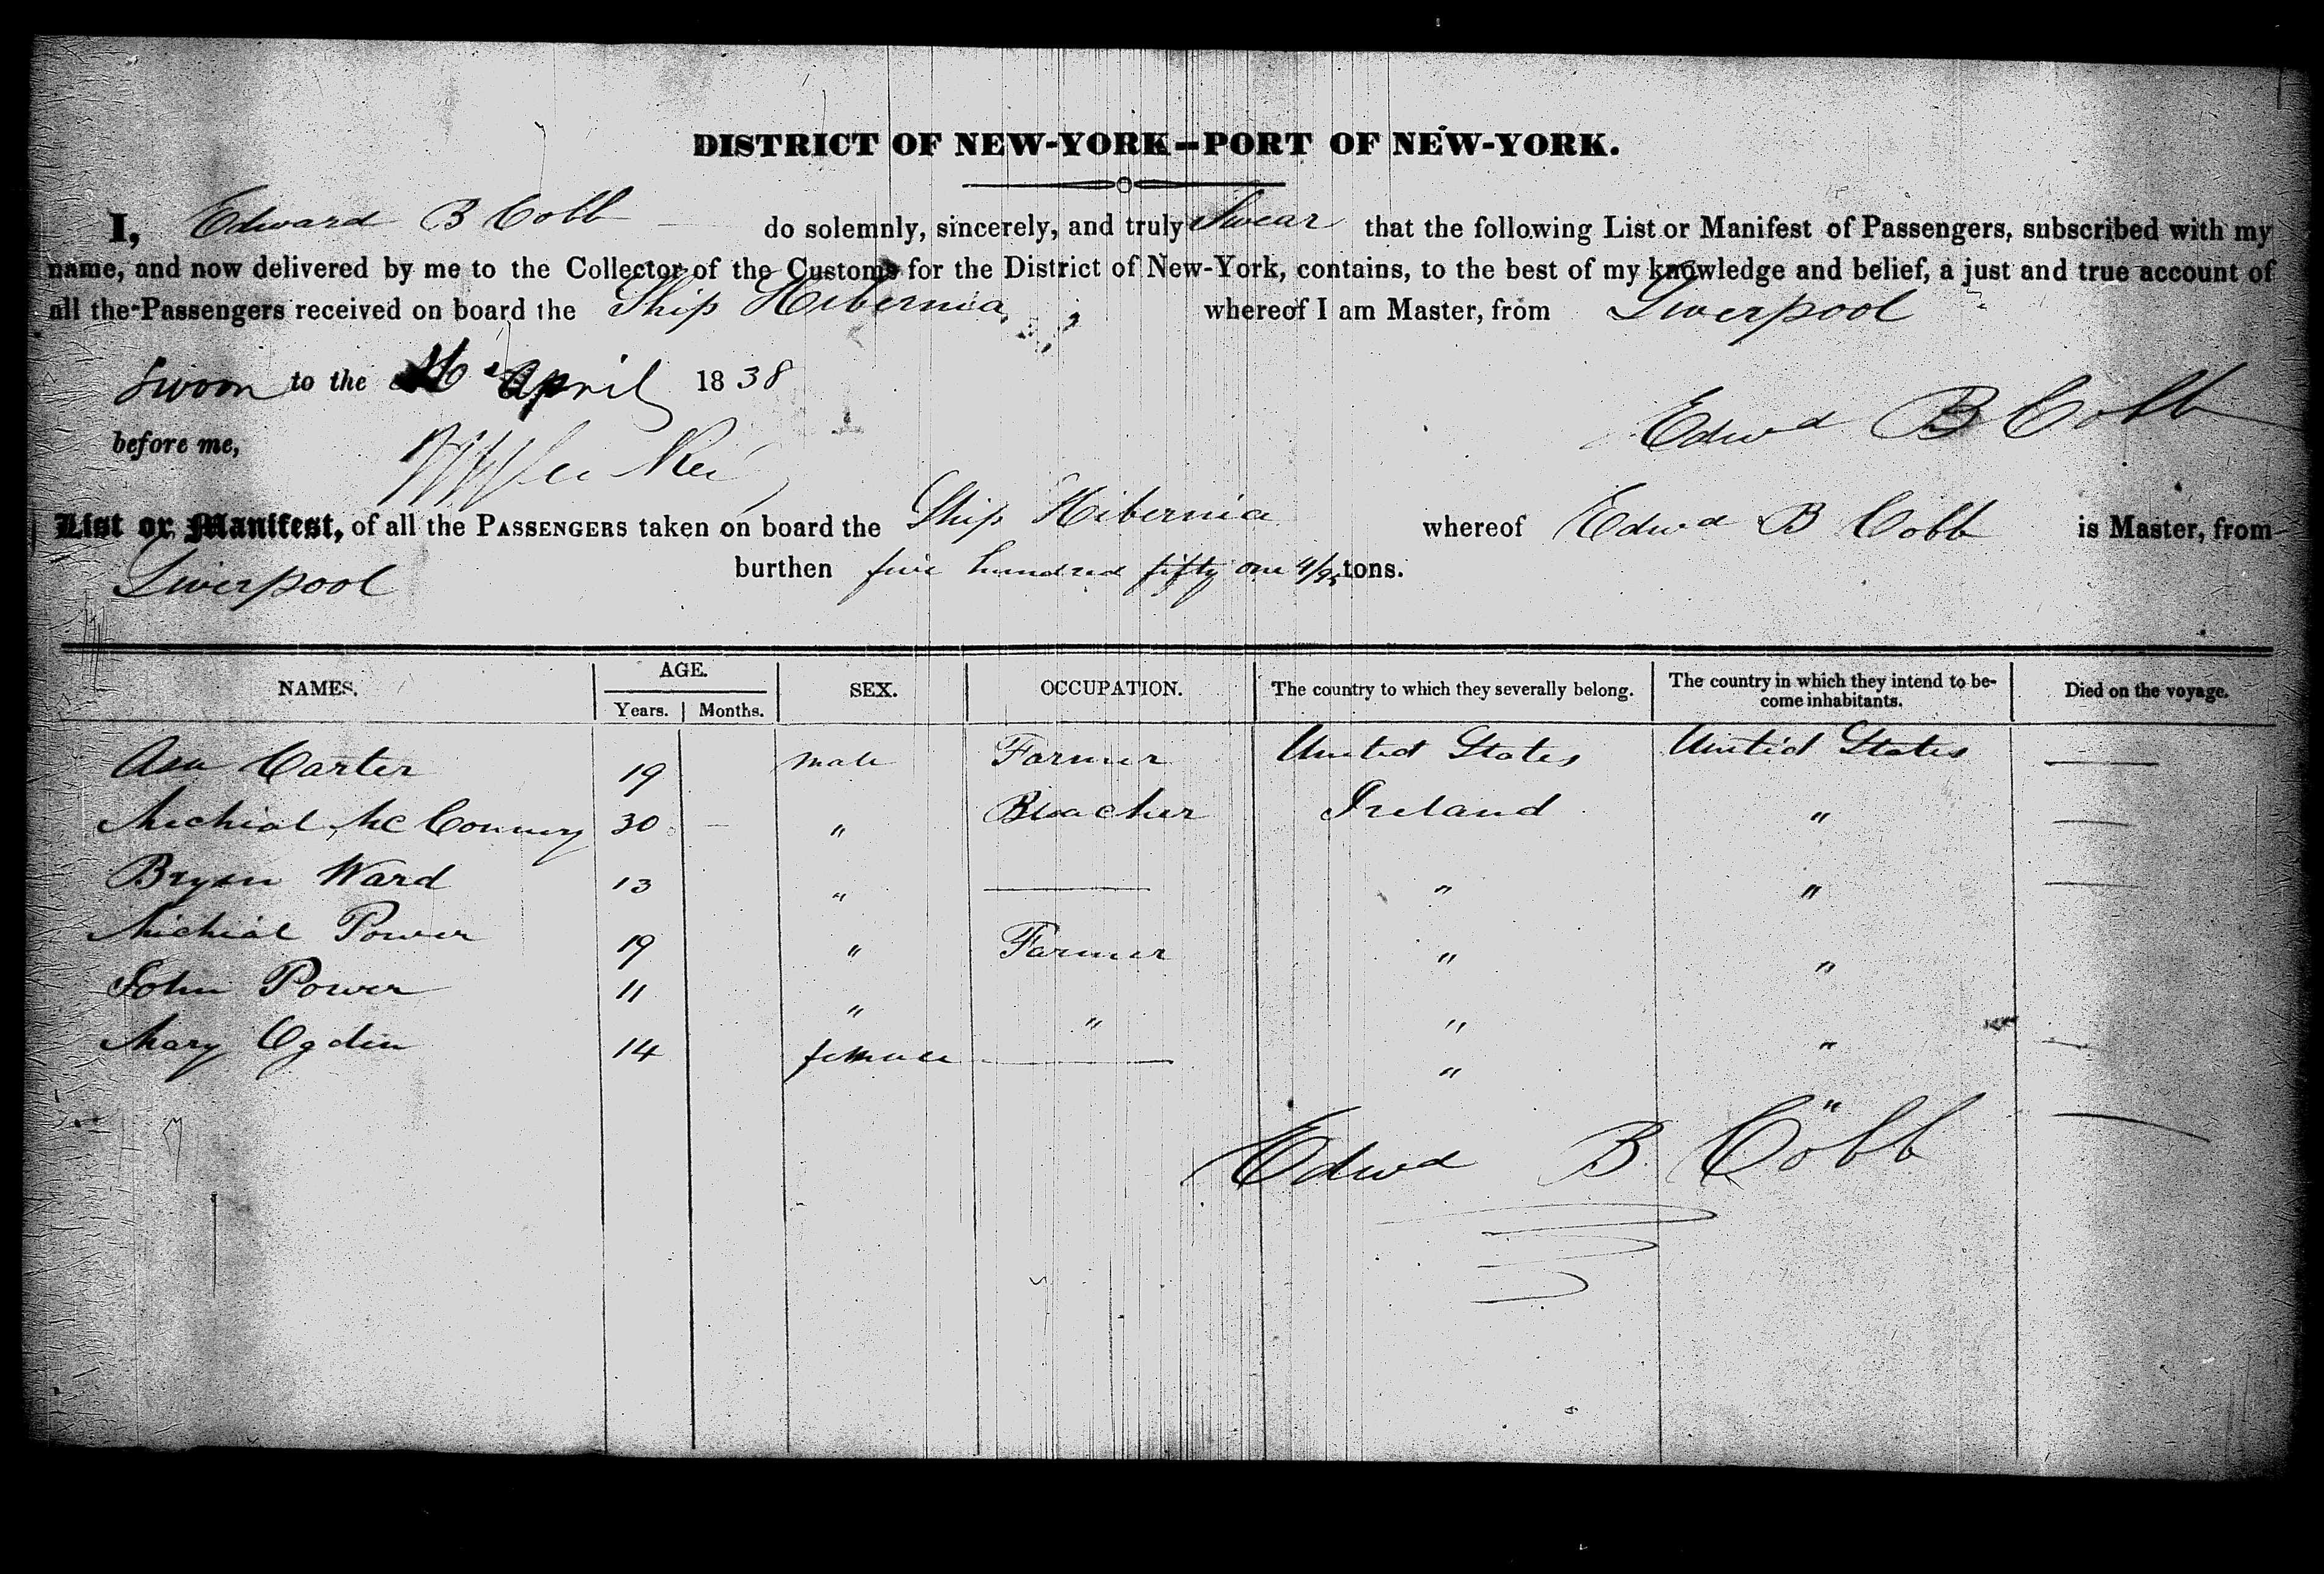 DISTRICT OF NEW-YORK—PORT OF NEW-YORK.
I, Edward B Cobb do solemnly, sincerely, and truly Swear that the following List or Manifest of Passengers, subscribed with my
name, and now delivered by me to the Collector of the Customs for the District of New-York, contains, to the best of my knowledge and belief, a just and true account of
all the Passengers received on board the Ship Hibernia, whereof I am Master, from Liverpool
Sworn to the April 1838
Edwd B Cobb
before me,
List or Manifest, of all the PASSENGERS taken on board the Ship Hibernia whereof Edwd B Cobb is Master, from
Liverpool burthen five hundred fifty one 4/95 tons.
NAMES. AGE. Years. Months. SEX. OCCUPATION. The country to which they severally belong. The country in which they intend to become inhabitants. Died on the voyage.
Asa Carter 19 male Farmer United States United States —
Michial McConnery 30 — " Bleacher Ireland " —
Bryan Ward 13 " — " " —
Michial Power 19 " Farmer " "
John Power 11 " " " " —
Mary Ogden 14 female — " " —
Edwd B. Cobb